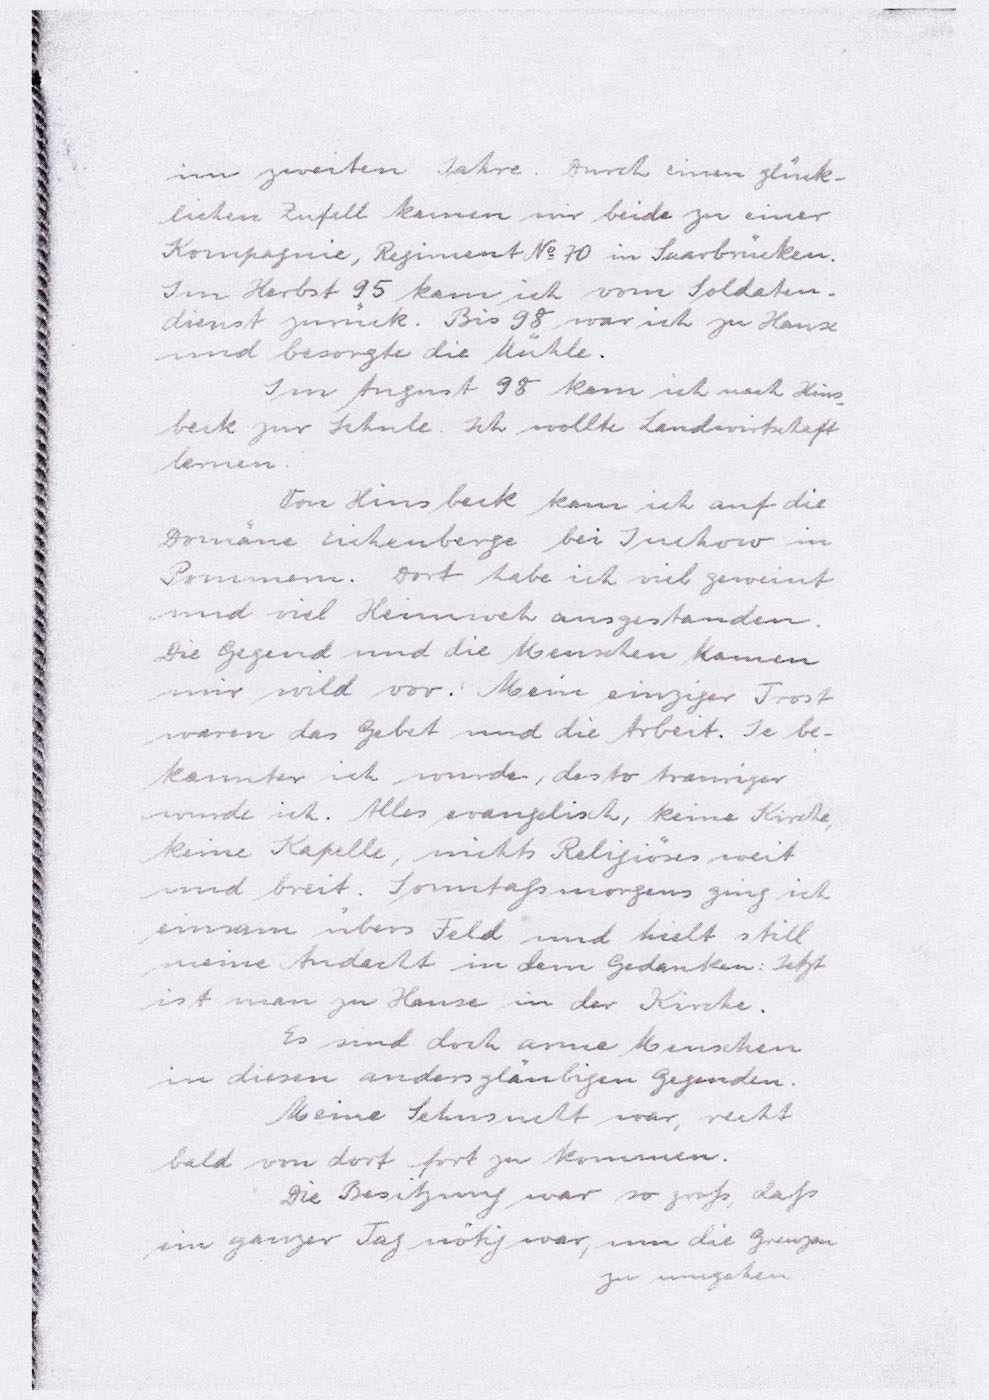 im zweiten Jahre. Durch einen glück-
lichen Zufall kamen wir beide zu einer
Kompagnie, Regiment No 70 in Saarbrücken.
Im Herbst 95 kam ich vom Soldaten-
dienst zurück. Bis 98 war ich zu Hause
und besorgte die Mühle.
Im August 98 kam ich nach Hins-
beck zur Schule. Ich wollte Landwirtschaft
lernen.
Von Hinsbeck kam ich auf die
Domäne Eichenberge bei Juchow in
Pommern. Dort habe ich viel geweint
und viel Heimweh ausgestanden.
Die Gegend und die Menschen kamen
mir wild vor. Mein einziger Trost
waren das Gebet und die Arbeit. Je be-
kannter ich wurde, desto trauriger
wurde ich. Alles evangelisch, keine Kirche,
keine Kapelle, nichts Religiöses weit
und breit. Sonntagsmorgens ging ich
einsam übers Feld und hielt still
meine Andacht in dem Gedanken: Jetzt
ist man zu Hause in der Kirche.
Es sind doch arme Menschen
in diesen andersgläubigen Gegenden.
Meine Sehnsucht war, recht
bald von dort fort zu kommen.
Die Besitzung war so groß, daß
ein ganzer Tag nötig war, um die Grenzen
zu umgehen